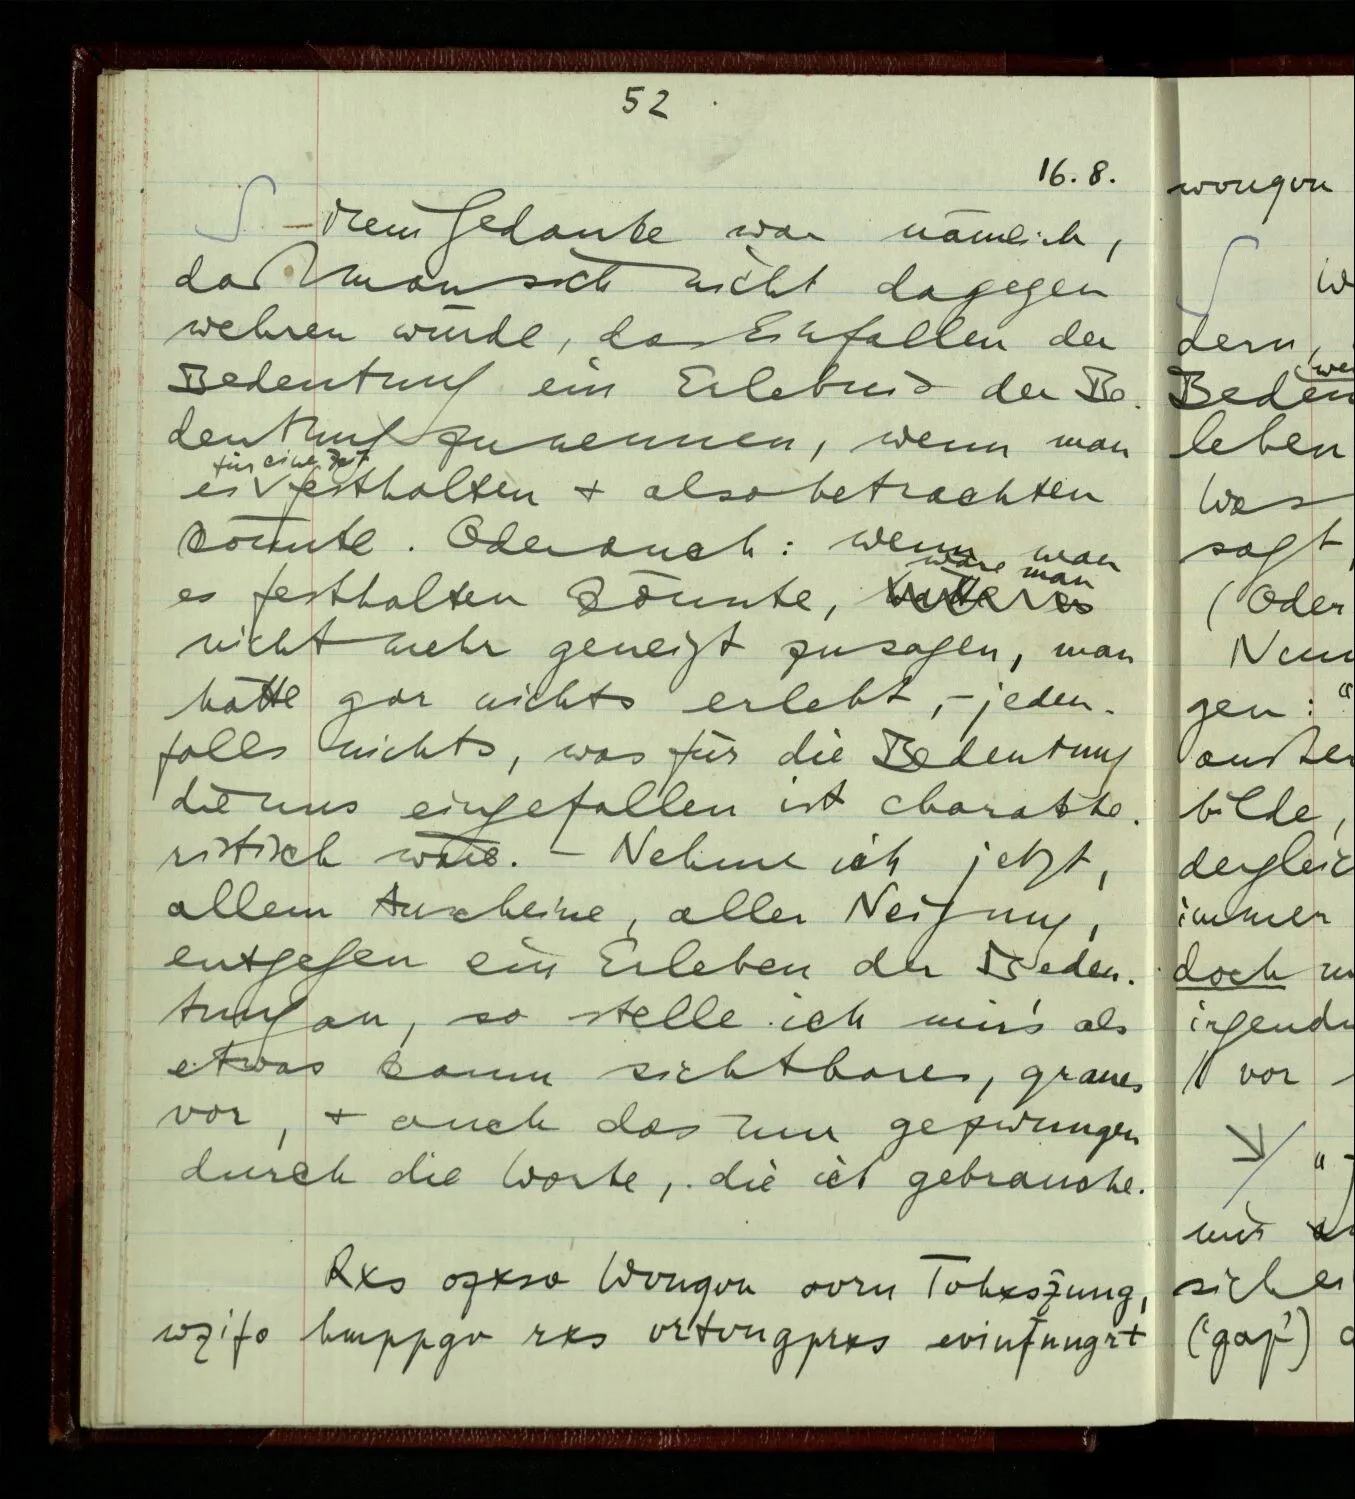 52
16.8.
S – Mein Gedanke war nämlich,
daß man sich nicht dagegen
wehren würde, das Einfallen der
Bedeutung ein Erlebnis der Be-
deutung zu nennen, wenn man
für eine Zeit
es ∨ festhalten + also betrachten
könnte. Oder auch: wenn man
wäre man
es festhalten könnte,
nicht mehr geneigt zu sagen, man
hätte gar nichts erlebt, – jeden-
falls nichts, was für die Bedeutung
die uns eingefallen ist charakte-
ristisch wäre. – Nehme ich jetzt,
allem Anscheine, aller Neigung,
entgegen ein Erleben der Bedeu-
tung an, so stelle ich mir's als
etwas kaum sichtbares, graues
vor, + auch das nur gezwungen
durch die Worte, die ich gebrauche.
Rxs ozxso Wvugvu
wzifo rxs
wvugvu
W
dern,
Beden
leben
Was
sagt,
(Oder
gen: "
bilde,
dergleic
immer
doch
irgend
vor
"
mir
siche
('gap')